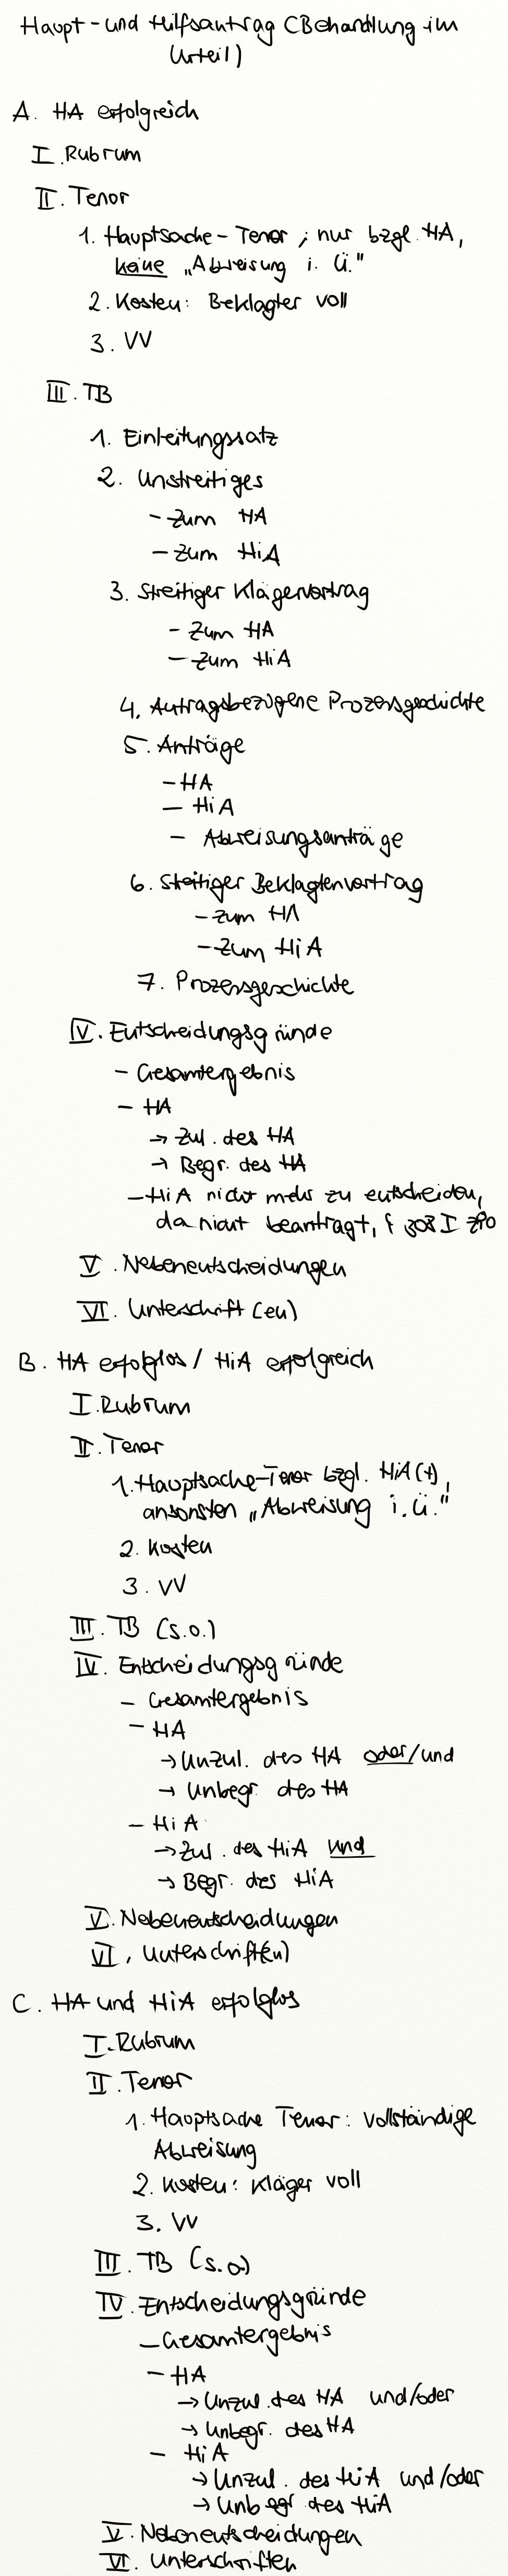 Haupt- und Hilfsantrag (Behandlung im
Urteil)
A. HA erfolgreich
I. Rubrum
II. Tenor
1. Hauptsache-Tenor; nur bzgl. HA,
keine „Abweisung i. Ü."
2. Kosten: Beklagter voll
3. VV
III. TB
1. Einleitungssatz
2. Unstreitiges
- zum HA
- zum HiA
3. Streitiger Klägervortrag
- zum HA
- zum HiA
4. Antragsbezogene Prozessgeschichte
5. Anträge
- HA
- HiA
- Abweisungsanträge
6. Streitiger Beklagtenvortrag
- zum HA
- zum HiA
7. Prozessgeschichte
IV. Entscheidungsgründe
- Gesamtergebnis
- HA
→ Zul. des HA
→ Begr. des HA
- HiA nicht mehr zu entscheiden,
da nicht beantragt, § 308 I ZPO
V. Nebenentscheidungen
VI. Unterschrift(en)
B. HA erfolglos / HiA erfolgreich
I. Rubrum
II. Tenor
1. Hauptsache-Tenor bzgl. HiA (+),
ansonsten „Abweisung i. Ü."
2. Kosten
3. VV
III. TB (s.o.)
IV. Entscheidungsgründe
- Gesamtergebnis
- HA
→ Unzul. des HA oder/und
→ Unbegr. des HA
- HiA
→ Zul. des HiA und
→ Begr. des HiA
V. Nebenentscheidungen
VI. Unterschrift(en)
C. HA und HiA erfolglos
I. Rubrum
II. Tenor
1. Hauptsache Tenor: vollständige
Abweisung
2. Kosten: Kläger voll
3. VV
III. TB (s.o.)
IV. Entscheidungsgründe
- Gesamtergebnis
- HA
→ Unzul. des HA und/oder
→ Unbegr. des HA
- HiA
→ Unzul. des HiA und/oder
→ Unbegr des HiA
V. Nebenentscheidungen
VI. Unterschriften